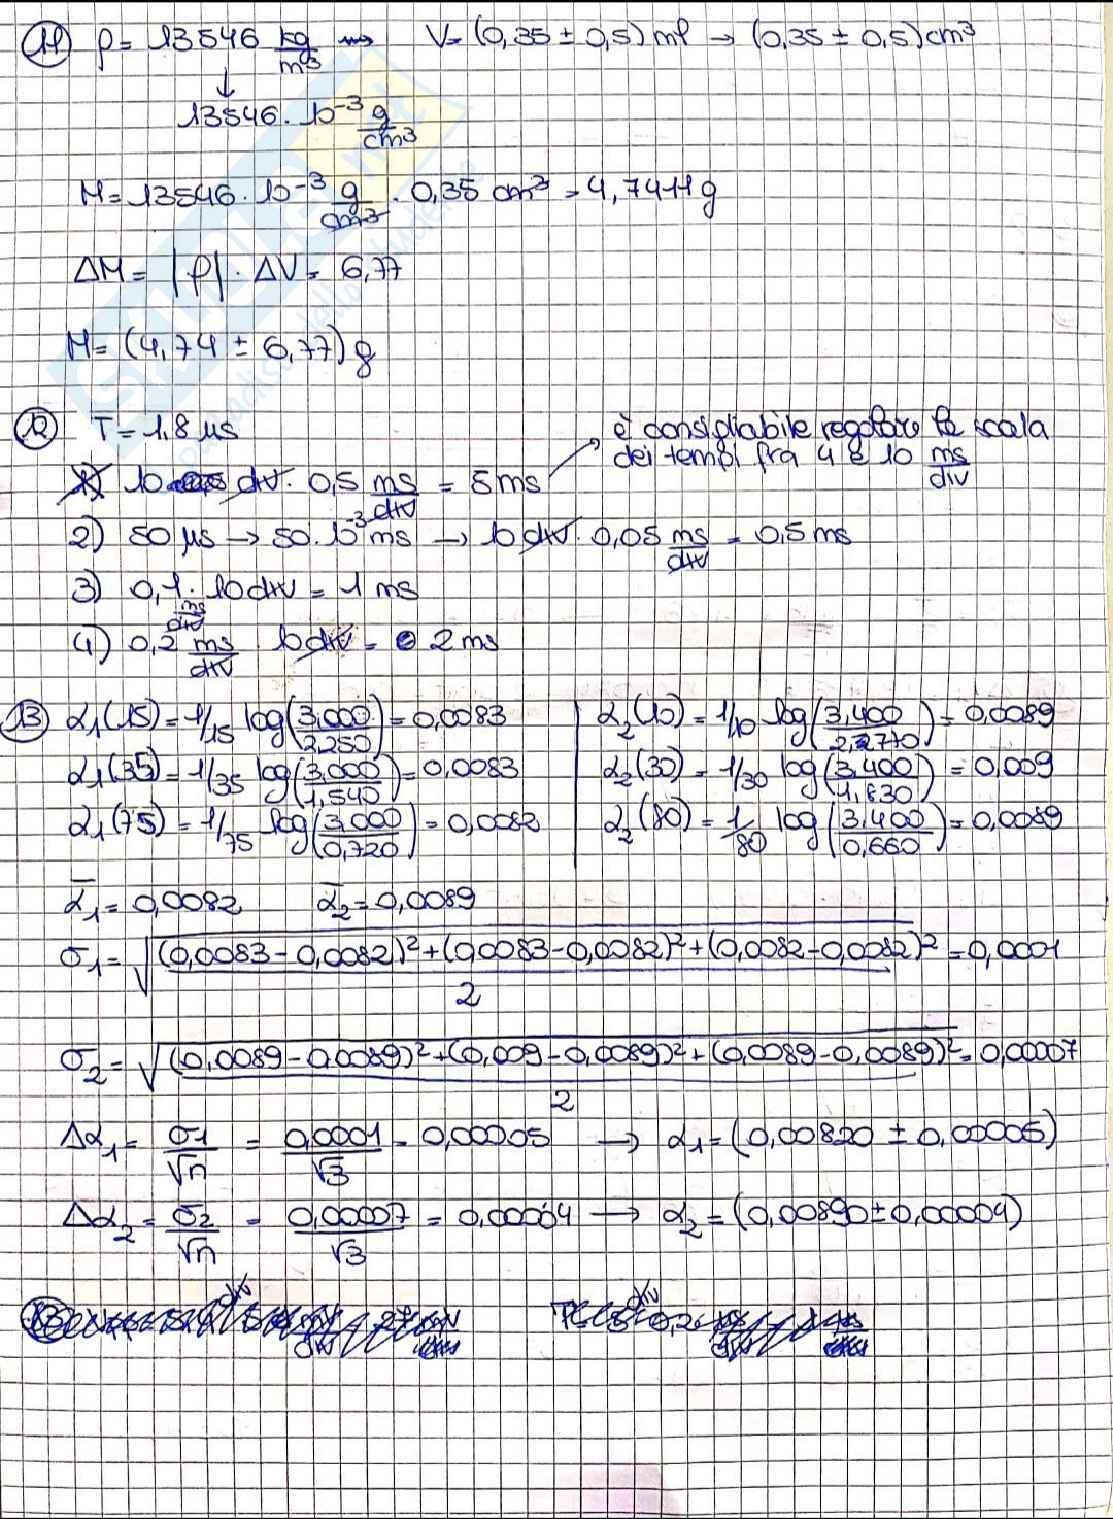 11) ρ = 13546 kg/m³ ⟿ V = (0,35 ± 0,5) ml → (0,35 ± 0,5) cm³
↓
13546 · 10⁻³ g/cm³
M = 13546 · 10⁻³ g/cm³ · 0,35 cm³ = 4,7411 g
ΔM = |ρ| · ΔV = 6,77
M = (4,74 ± 6,77) g
12) T = 1,8 μs
è consigliabile regolare la scala
dei tempi fra 4 e 10 ms/div
1) 10 div · 0,5 ms/div = 5 ms
2) 50 μs → 50 · 10⁻³ ms → 10 div · 0,05 ms/div = 0,5 ms
3) 0,1 ms/div · 10 div = 1 ms
4) 0,2 ms/div · 10 div = 2 ms
13) α₁(15) = 1/15 log(3,000/2,250) = 0,0083 α₂(10) = 1/10 log(3,400/2,770) = 0,0089
α₁(35) = 1/35 log(3,000/1,540) = 0,0083 α₂(30) = 1/30 log(3,400/1,830) = 0,009
α₁(75) = 1/75 log(3,000/0,720) = 0,0082 α₂(80) = 1/80 log(3,400/0,660) = 0,0089
ᾱ₁ = 0,0082 ᾱ₂ = 0,0089
σ₁ = √((0,0083 - 0,0082)² + (0,0083 - 0,0082)² + (0,0082 - 0,0082)² / 2) = 0,0001
σ₂ = √((0,0089 - 0,0089)² + (0,009 - 0,0089)² + (0,0089 - 0,0089)² / 2) = 0,00007
Δα₁ = σ₁/√n = 0,0001/√3 = 0,00005 → α₁ = (0,00820 ± 0,00005)
Δα₂ = σ₂/√n = 0,00007/√3 = 0,00004 → α₂ = (0,00890 ± 0,00004)